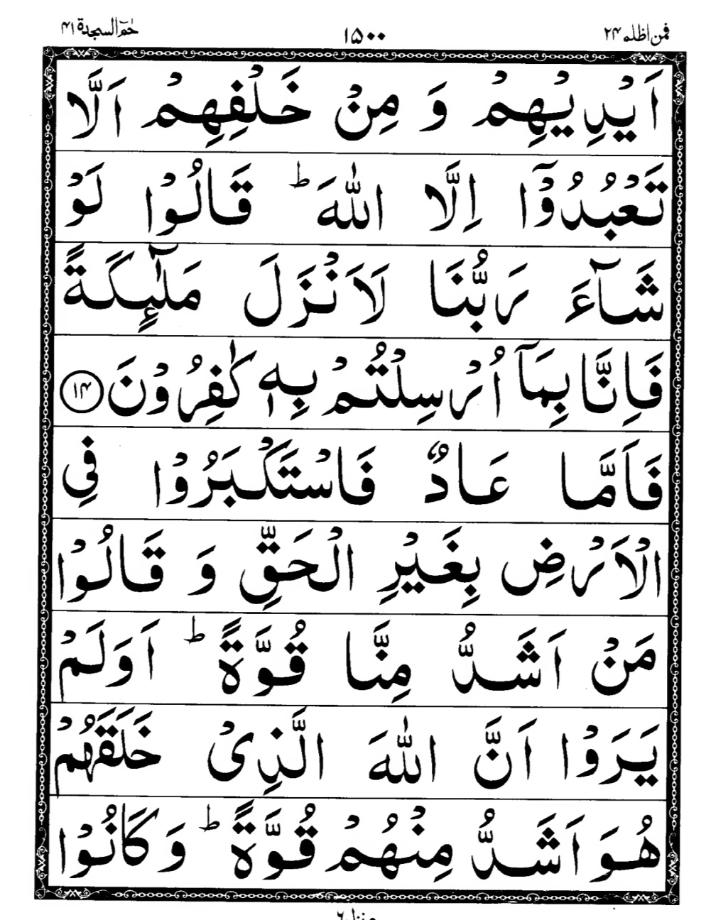 فمن اظلم ۲۴ ۱۵۰۰ حٰمٓ السجدة ۴۱
اَيْدِيْهِمْ وَ مِنْ خَلْفِهِمْ اَلَّا
تَعْبُدُوْۤا اِلَّا اللّٰهَ ؕ قَالُوْا لَوْ
شَآءَ رَبُّنَا لَاَنْزَلَ مَلٰٓئِكَةً
فَاِنَّا بِمَاۤ اُرْسِلْتُمْ بِهٖ كٰفِرُوْنَ ۱۴
فَاَمَّا عَادٌ فَاسْتَكْبَرُوْا فِي
الْاَرْضِ بِغَيْرِ الْحَقِّ وَ قَالُوْا
مَنْ اَشَدُّ مِنَّا قُوَّةً ؕ اَوَلَمْ
يَرَوْا اَنَّ اللّٰهَ الَّذِىْ خَلَقَهُمْ
هُوَ اَشَدُّ مِنْهُمْ قُوَّةً ؕ وَ كَانُوْا
منزل ۶